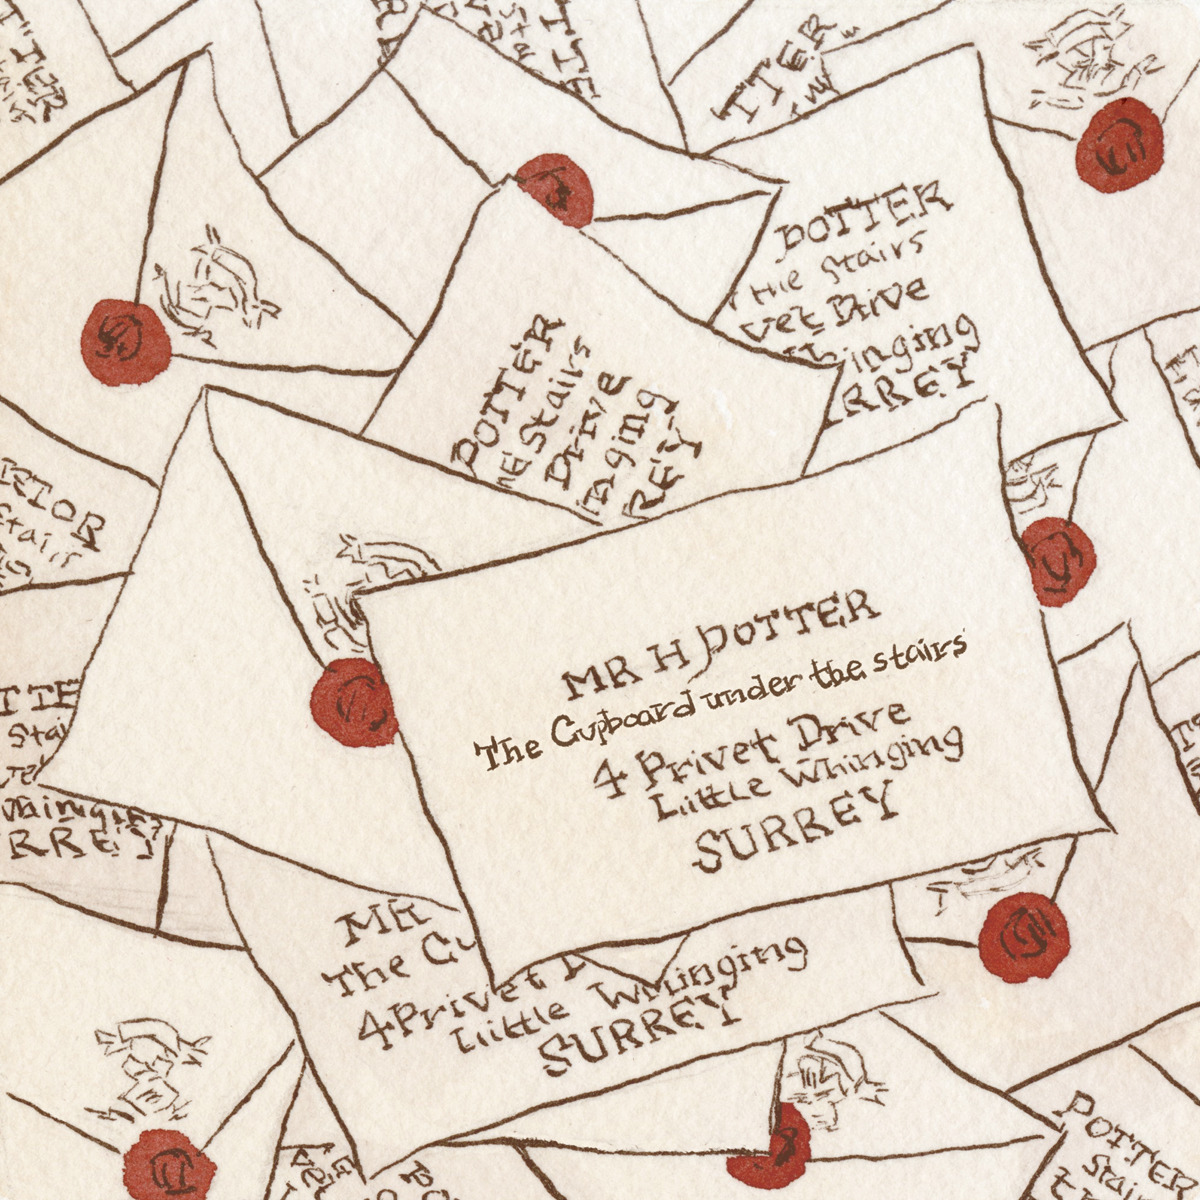 TTER
TTE
TTER
POTTER
the stairs
vet Drive
hinging
RREY
POTTER
HE Stairs
Drive
inging
REY
RIOR
Stairs
MR H POTTER
The Cupboard under the stairs
4 Privet Drive
Little Whinging
SURREY
TTE
Stai
Whinging
RREY
MR
The Cu
4 Privet D
Little Whinging
SURREY
POTTER
Stairs